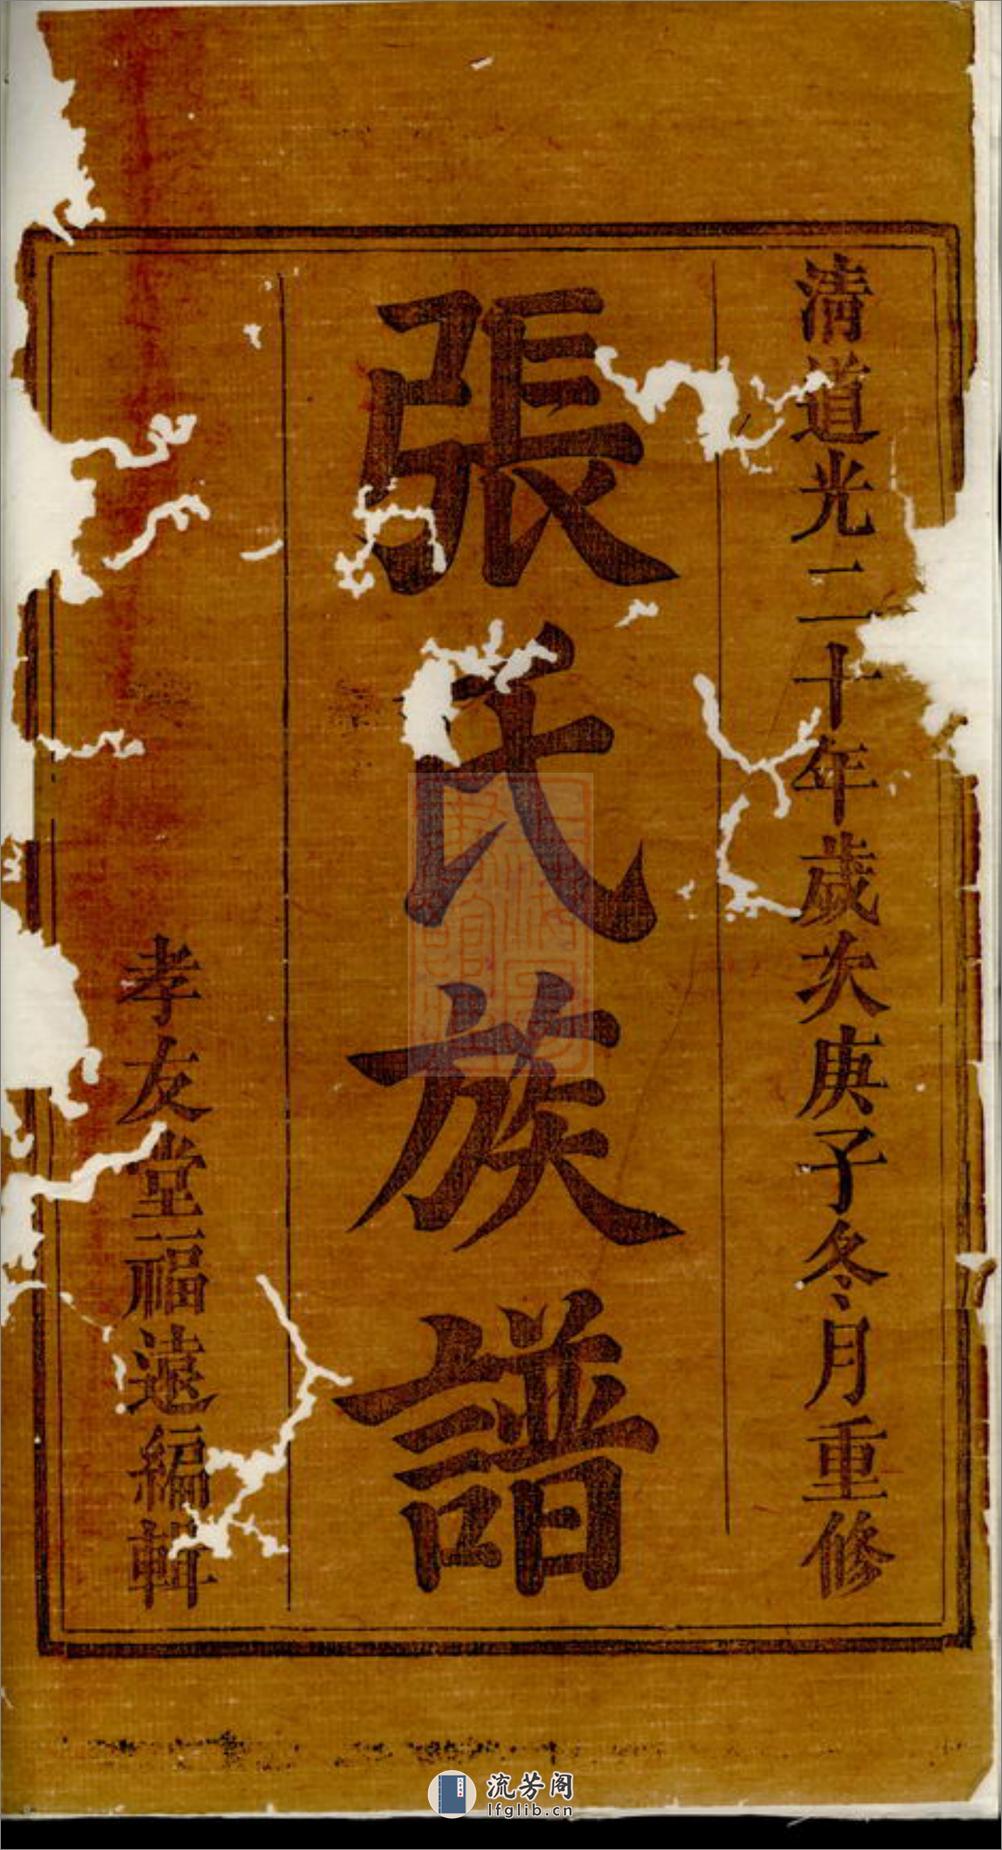 清道光二十年歲次庚子冬月重修
張氏族譜
孝友堂福遠編輯
流芳阁
lfglib.cn